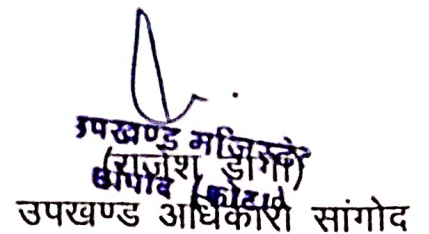 उपखण्ड मजिस्ट्रेट
(राजेश डागा)
सांगोद (कोटा)
उपखण्ड अधिकारी सांगोद